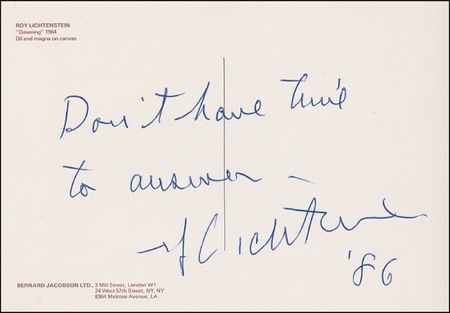 ROY LICHTENSTEIN
"Dawning" 1964
Oil and magna on canvas
Don't have time
to answer -
rf Lichtenstein
'86
BERNARD JACOBSON LTD., 3 Mill Street, London W1
24 West 57th Street, NY, NY
8364 Melrose Avenue, LA